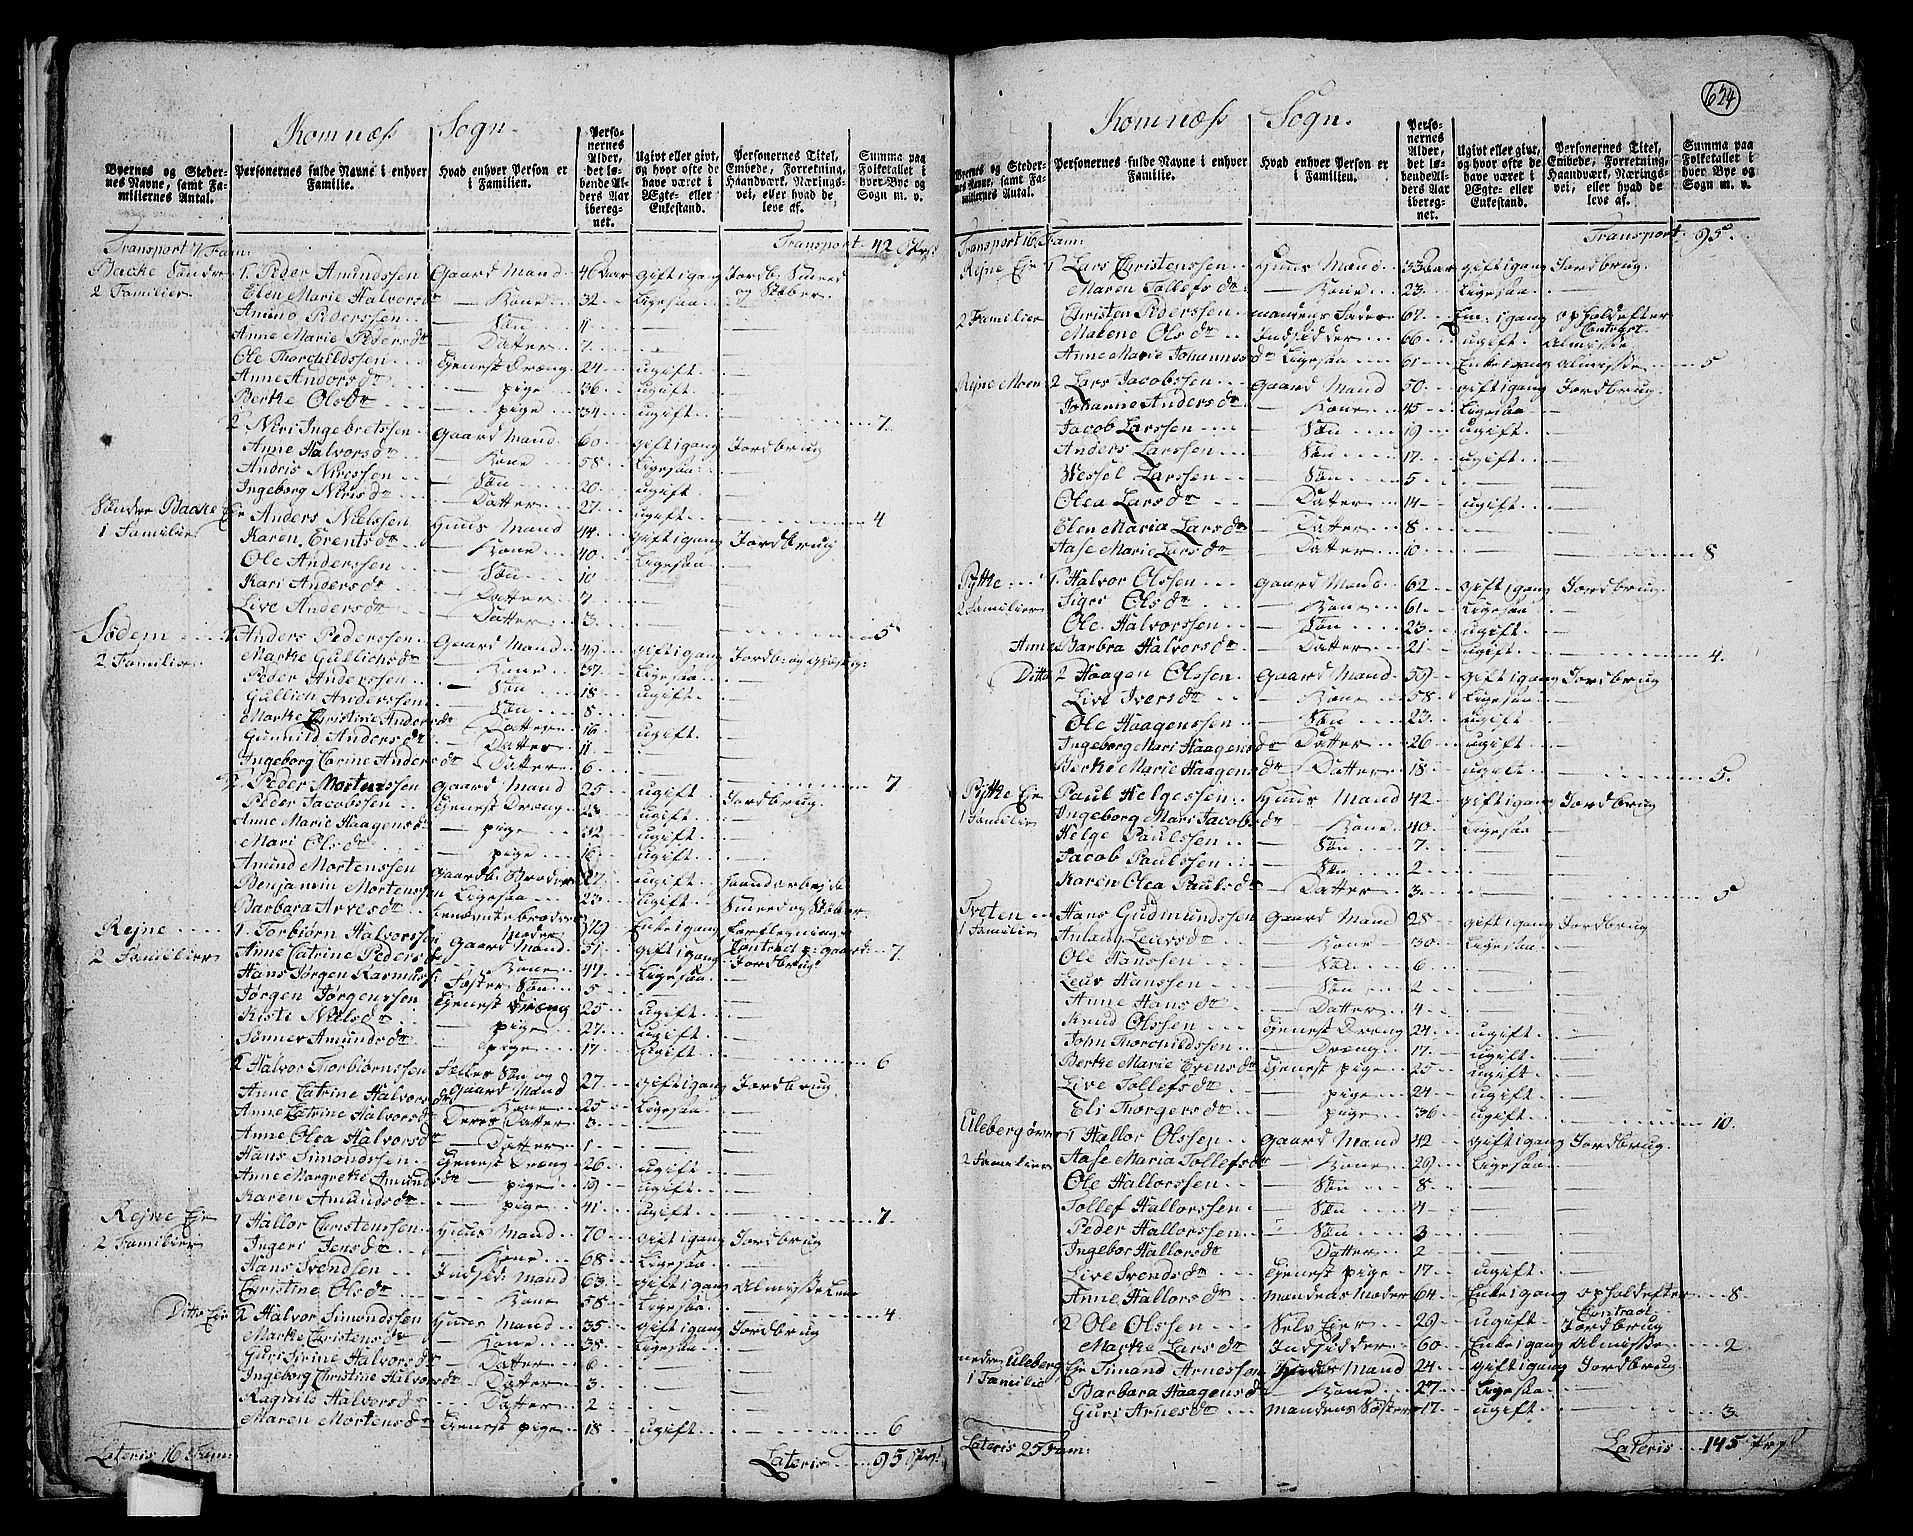 624
Komnæs Sogn.
Byernes og Stedernes Navne, samt Familiernes Antal. Personernes fulde Navne i enhver Familie. Hvad enhver Person er i Familien. Personernes Alder, det løbende Alders Aar iberegnet. Ugivt eller givt, og hvor ofte de have været i Ægte- eller Enkestand. Personernes Titel, Embede, Forretning, Haandværk, Næringsvei, eller hvad de leve af. Summa paa Folketallet i hver Bye og Sogn m. v.
Transport 7 Fam: Transport 42
Backe Sønder 1 Peder Amundssen Gaard Mand 46 Aar gift 1 gang Jordb: Smed
2 Familier Elen Marie Halvorsdr — Kone 32 Ligesaa og Støber
Amund Pederssen — Søn 11
Anne Marie Pedersdr — Datter 7
Ole Thorchildssen Tjenest Dræng 24 ugift
Anne Andorsdr — pige 36 ugift
Berthe Olsdr — pige 34 ugift 7.
2 Niri Ingebretssen Gaard Mand 60 gift 1 gang Jordbrug
Anne Halvorsdr — Kone 58 Ligesaa
Andris Nirssen — Søn 20 ugift
Ingeborg Nirisdr — Datter 27 ugift 4
Søndre Backe Eie Anders Nielssen Huus Mand 44 gift 1 gang Jordbrug
1 Familier Karen Erentsdr — Kone 40 Ligesaa
Ole Anderssen — Søn 10
Kari Andersdr — Datter 7
Live Andersdr — Datter 3 5
Sødem 1 Anders Pederssen Gaard Mand 49 gift 1 gang
2 Familier Marthe Gullichsdr — Kone 37 Ligesaa
Peder Anderssen — Søn 18 ugift
Gullich Anderssen — Søn 8
Marthe Christine Andersdr — Datter 16 ugift
Gunnild Andersdr — Datter 11
Ingeborg Carine Andersdr — Datter 6 7
2 Peder Mortenssen Gaard Mand 25 ugift Jordbrug
Peder Jacobssen Tjenest Dræng 23 ugift
Anne Marie Haagensdr — pige 32 ugift
Mari Olsdr — pige 16 ugift
Amund Mortenssen Gaardb: Broder 27 ugift haandarbejde
Benjamin Mortenssen Ligesaa 23 ugift Smed og Støber
Barbara Arvesdr Moder 79 Enke 1 gang 7.
Rejne 1 Torbiørn Halvorssen Gaard Mand 51 gift 1 gang Jordbrug
2 Familier Anne Catrine Pedersdr — Kone 42 Ligesaa
Hans Jørgen Rasmuss: Foster Søn 5
Jørgen Jørgenssen Tjenest Dræng 25 ugift
Kisti Nielsdr — pige 27 ugift
Sønnev Amundsdr — pige 17 ugift 6
2 Halvor Thorbiørnssen Fælles Søn og Gaard Mand 27 gift 1 gang Jordbrug
Anne Catrine Halvorsdr — Kone 25 Ligesaa
Anne Catrine Halvorsdr Deres Datter 3
Anne Olea Halvorsdr — Datter 1
Hans Simondssen Tjenest Dræng 26 ugift
Anne Margrethe Amundsdr — pige 19 ugift
Karen Amundsdr — pige 41 ugift 7
Rejne Eje 1 Hallor Christenssen Huus Mand 70 gift 1 gang Jordbrug
2 Familier Ingeri Jensdr — Kone 68 Ligesaa
Hans Svendsen Indsid: Mand 63 gift 1 gang Almisse Lem
Christine Olsdr — Kone 58 Ligesaa 4
Ditto Eje 2 Halvor Simondssen Huus Mand 35 gift 1 gang Jordbrug
Marthe Christensdr — Kone 38 Ligesaa
Guri Sirine Halvorsdr — Datter 6
Ingeborg Christine Halvorsdr — Datter 3
Ragnild Halvorsdr — Datter 2
Maren Mortensdr Tjenest pige 18 ugift 6
Lateris 16 Fam: Lateris 95
Komnæs Sogn.
Byernes og Stedernes Navne, samt Familiernes Antal. Personernes fulde Navne i enhver Familie. Hvad enhver Person er i Familien. Personernes Alder, det løbende Alders Aar iberegnet. Ugivt eller givt, og hvor ofte de have været i Ægte- eller Enkestand. Personernes Titel, Embede, Forretning, Haandværk, Næringsvei, eller hvad de leve af. Summa paa Folketallet i hver Bye og Sogn m. v.
Transport 16 Fam: Transport 95.
Rejne Eje 1 Lars Christenssen Huus Mand 33 Aar gift 1 gang Jordbrug
Maren Tollefsdr — Kone 23 Ligesaa
2 Familier Christen Pederssen Mandens Fader 67 Em: 1 gang ophold efter Contract
Malene Olsdr Indsidder 66 ugift Almisse
Anne Marie Johannesdr Ligesaa 61 Enke 1 gang Almisse 5
Rejne Moen 2 Lars Jacobssen Gaard Mand 50 gift 1 gang Jordbrug
Johanne Andersdr — Kone 45 Ligesaa
Jacob Larssen — Søn 19 ugift
Anders Larssen — Søn 17 ugift
Wessel Larssen — Søn 5
Olea Larsdr — Datter 14 ugift
Elen Maria Larsdr — Datter 8
Aase Marie Larsdr — Datter 10 8
Pytte 1 Halvor Olssen Gaard Mand 62 gift 1 gang Jordbrug
2 Familier Sigri Olsdr — Kone 61 Ligesaa
Ole Halvorssen — Søn 23 ugift
Anne Barbra Halvorsdr — Datter 21 ugift 4.
Ditto 2 Haagen Olssen Gaard Mand 59 gift 1 gang Jordbrug
Live Iversdr — Kone 58 Ligesaa
Ole Haagenssen — Søn 23 ugift
Ingeborg Mari Haagensdr — Datter 26 ugift
Berthe Marie Haagensdr — Datter 18 ugift 5.
Pytte Eje Paul Helgessen Huus Mand 42 gift 1 gang Jordbrug
1 Familier Ingeborg Mari Jacobsdr — Kone 40 Ligesaa
Helge Paulssen — Søn 7
Jacob Paulssen — Søn 2
Karen Olea Paulsdr — Datter 3 5
Tveten Hans Gudmundssen Gaard Mand 28 gift 1 gang Jordbrug
1 Familier Anlaug Leursdr — Kone 30 Ligesaa
Ole Hanssen — Søn 6
Leur Hanssen — Søn 2
Anne Hansdr — Datter 4
Knud Olssen Tjenest Dræng 24 ugift
John Thorchildssen — Dræng 17 ugift
Berthe Marie Evensdr Tjenest pige 25 ugift
Live Tollefsdr — pige 24 ugift
Eli Thorgersdr — pige 36 ugift 10
Uleberg øvre 1 Hallor Olssen Gaard Mand 42 gift 1 gang Jordbrug
2 Familier Aase Maria Tollefsdr — Kone 29 Ligesaa
Ole Hallorssen — Søn 8
Tollef Hallorssen — Søn 4
Peder Hallorssen — Søn 3
Ingebor Hallorsdr Datter 2
Live Svendsdr Tjenest pige 17 ugift
Anne Hallorsdr Mandens Moder 64 Enke 1 gang ophold efter Contract 8
2 Ole Olssen Selv Ejer 29 ugift Jordbrug
Marthe Larsdr Indsidder 60 Enke 1 gang Almisse 2
nedre Uleberg Eje Simond Arnessen Mand 24 gift 1 gang Jordbrug
1 Familie Barbara Haagensdr — Kone 27 Ligesaa
Guri Arnesdr Mandens Søster 17 ugift 3
Lateris 25 Fam: Lateris 145